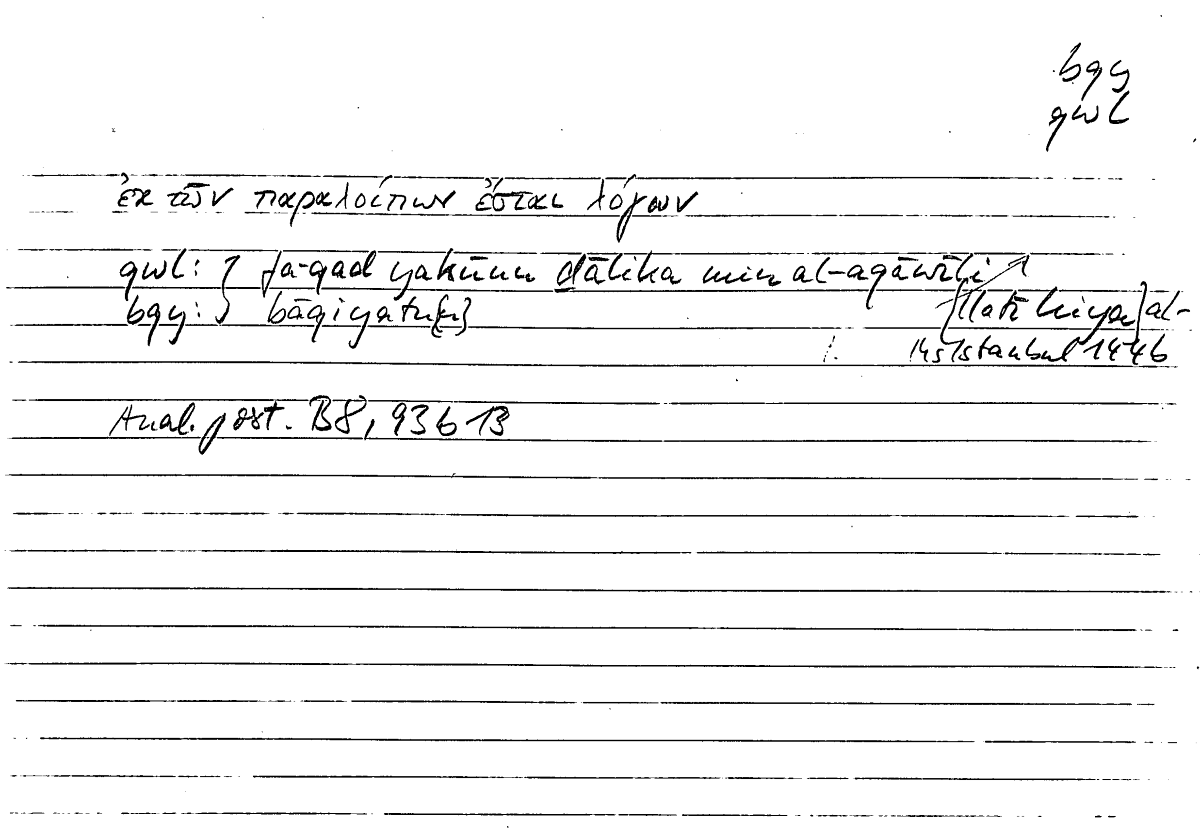 bqy
qwl
ἐκ τῶν παραλοίπων ἔσται λόγων
qwl: } fa-qad yakūnu ḏālika min al-aqāwīli
bqy: } bāqiyatu[n] [llatī hiya] al-
Ms Istanbul 1446
Anal. post. B8, 93b13